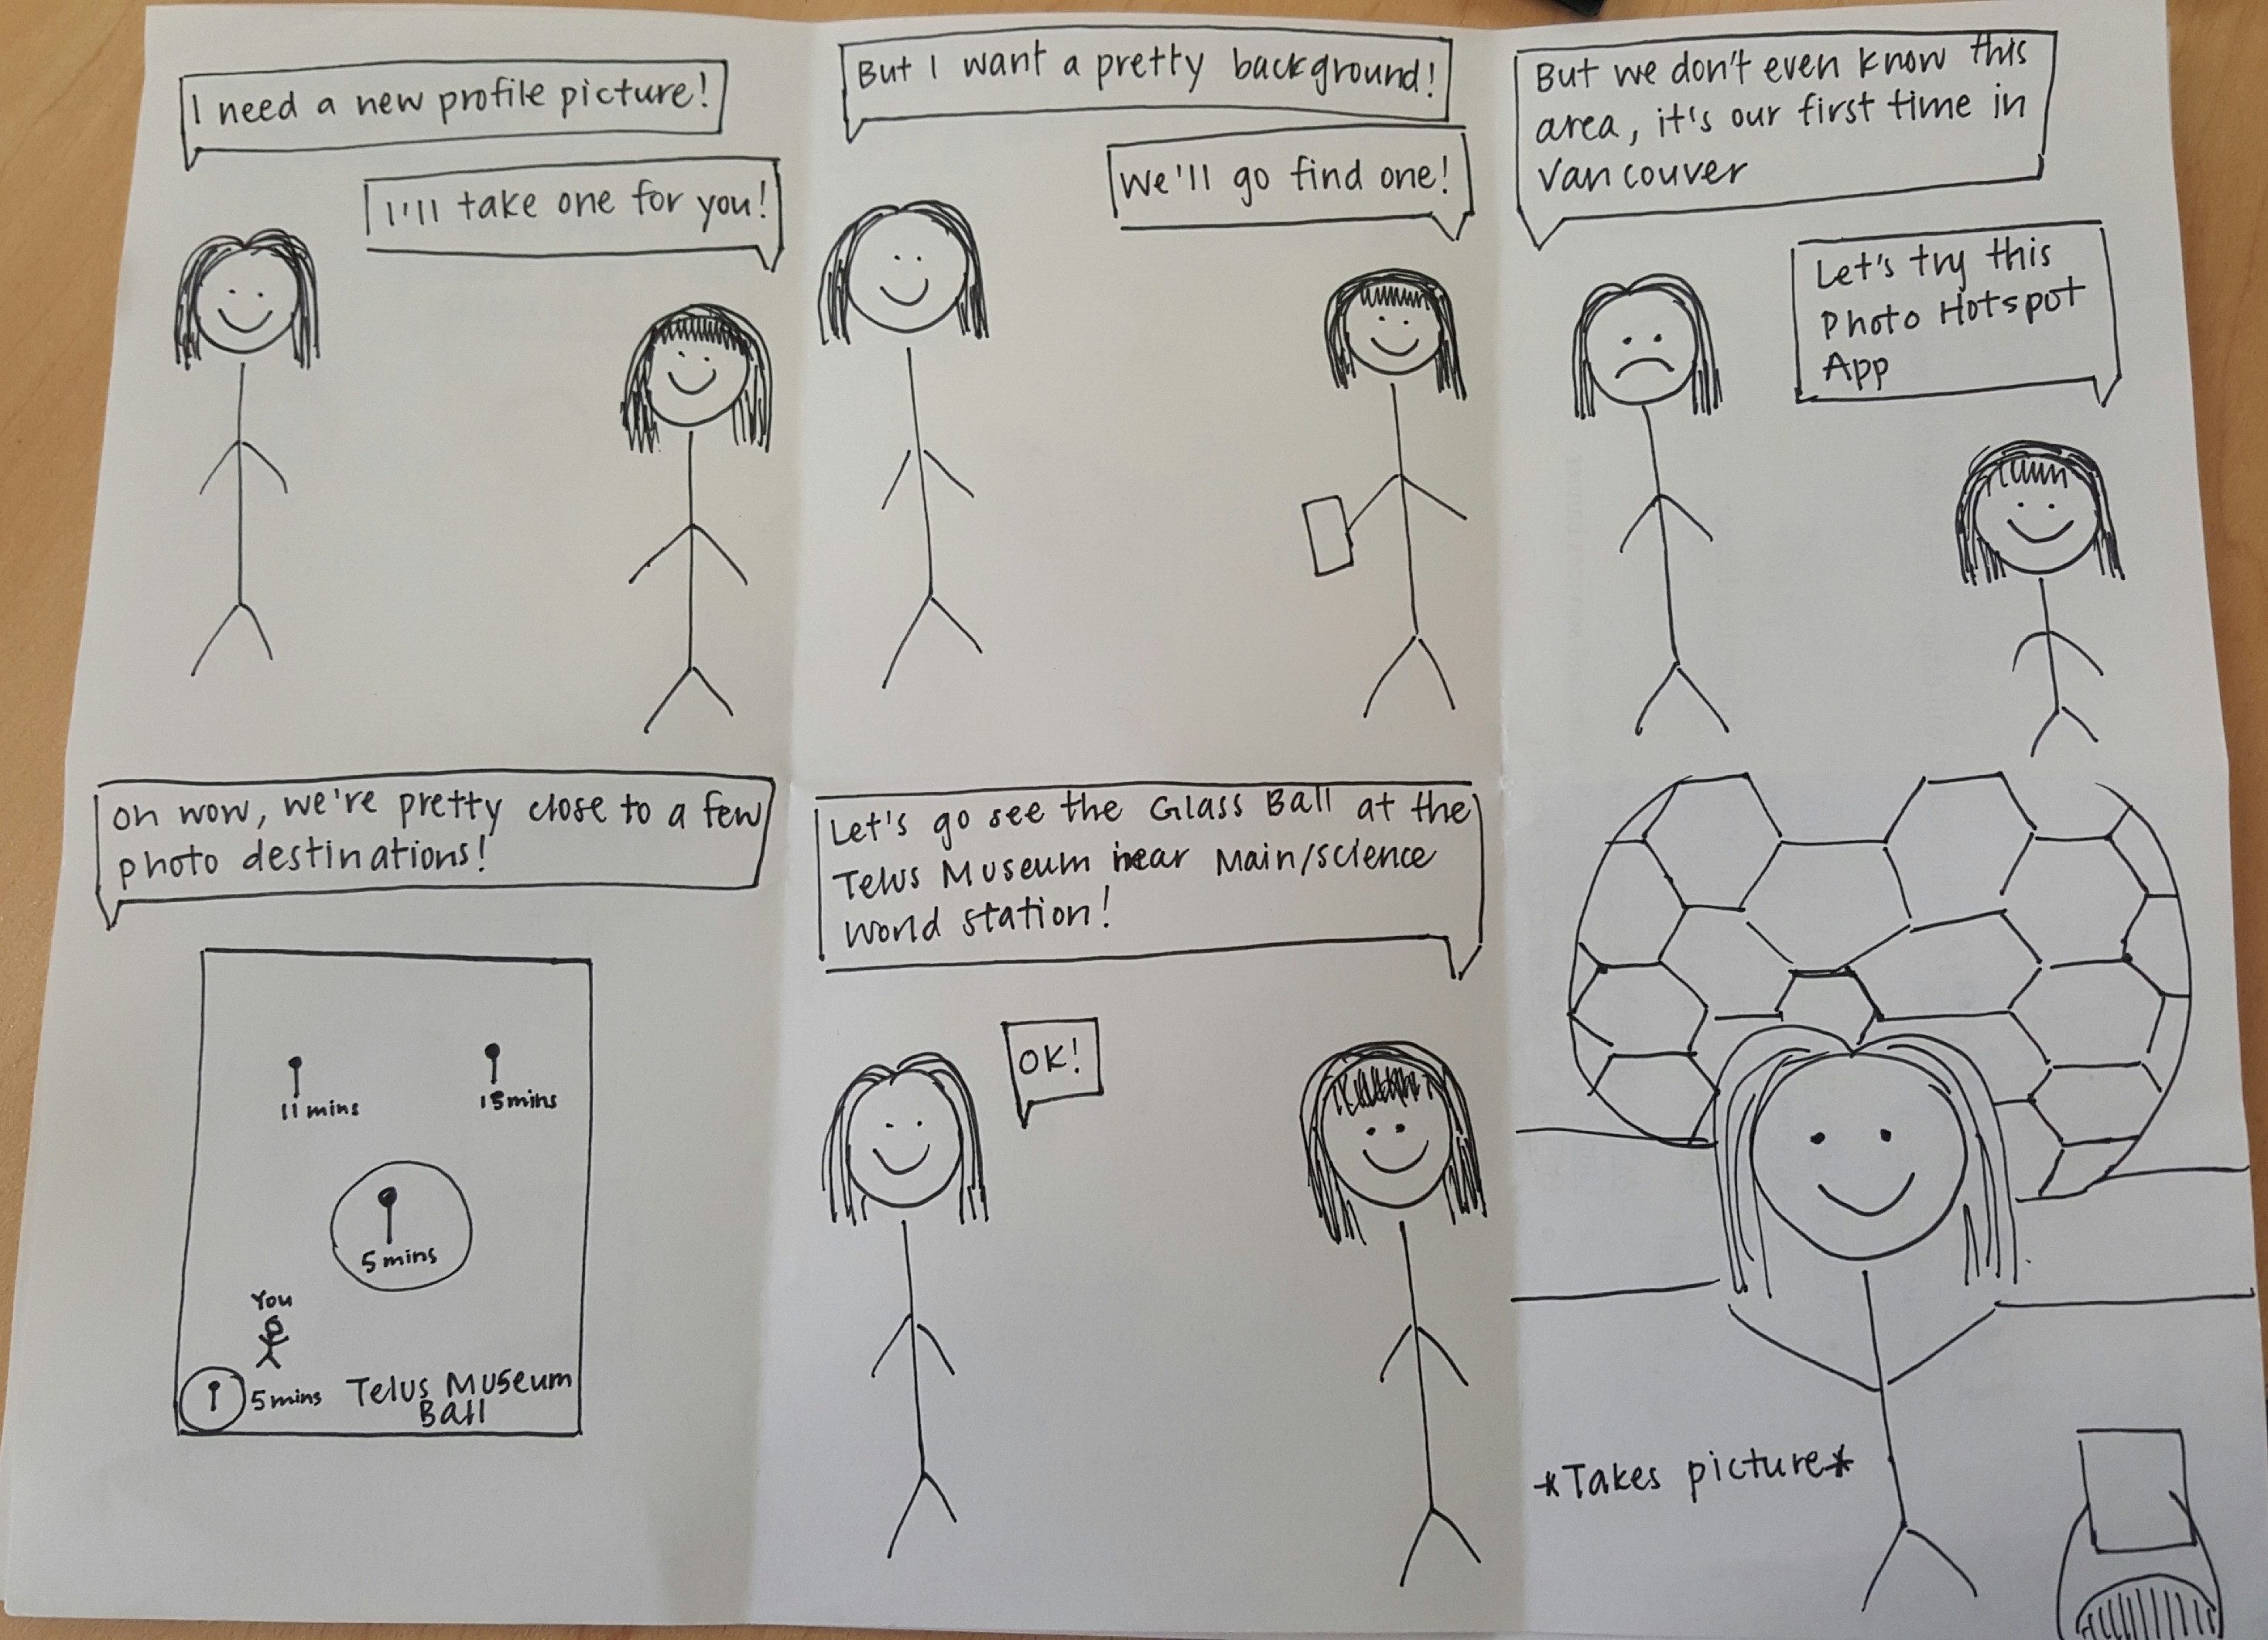 I need a new profile picture!
I'll take one for you!
But I want a pretty background!
We'll go find one!
But we don't even know this
area, it's our first time in
Vancouver
Let's try this
Photo Hotspot
App
oh wow, we're pretty close to a few
photo destinations!
11 mins
15 mins
5 mins
You
5 mins Telus Museum
Ball
Let's go see the Glass Ball at the
Telus Museum near Main/science
world station!
OK!
*Takes picture*